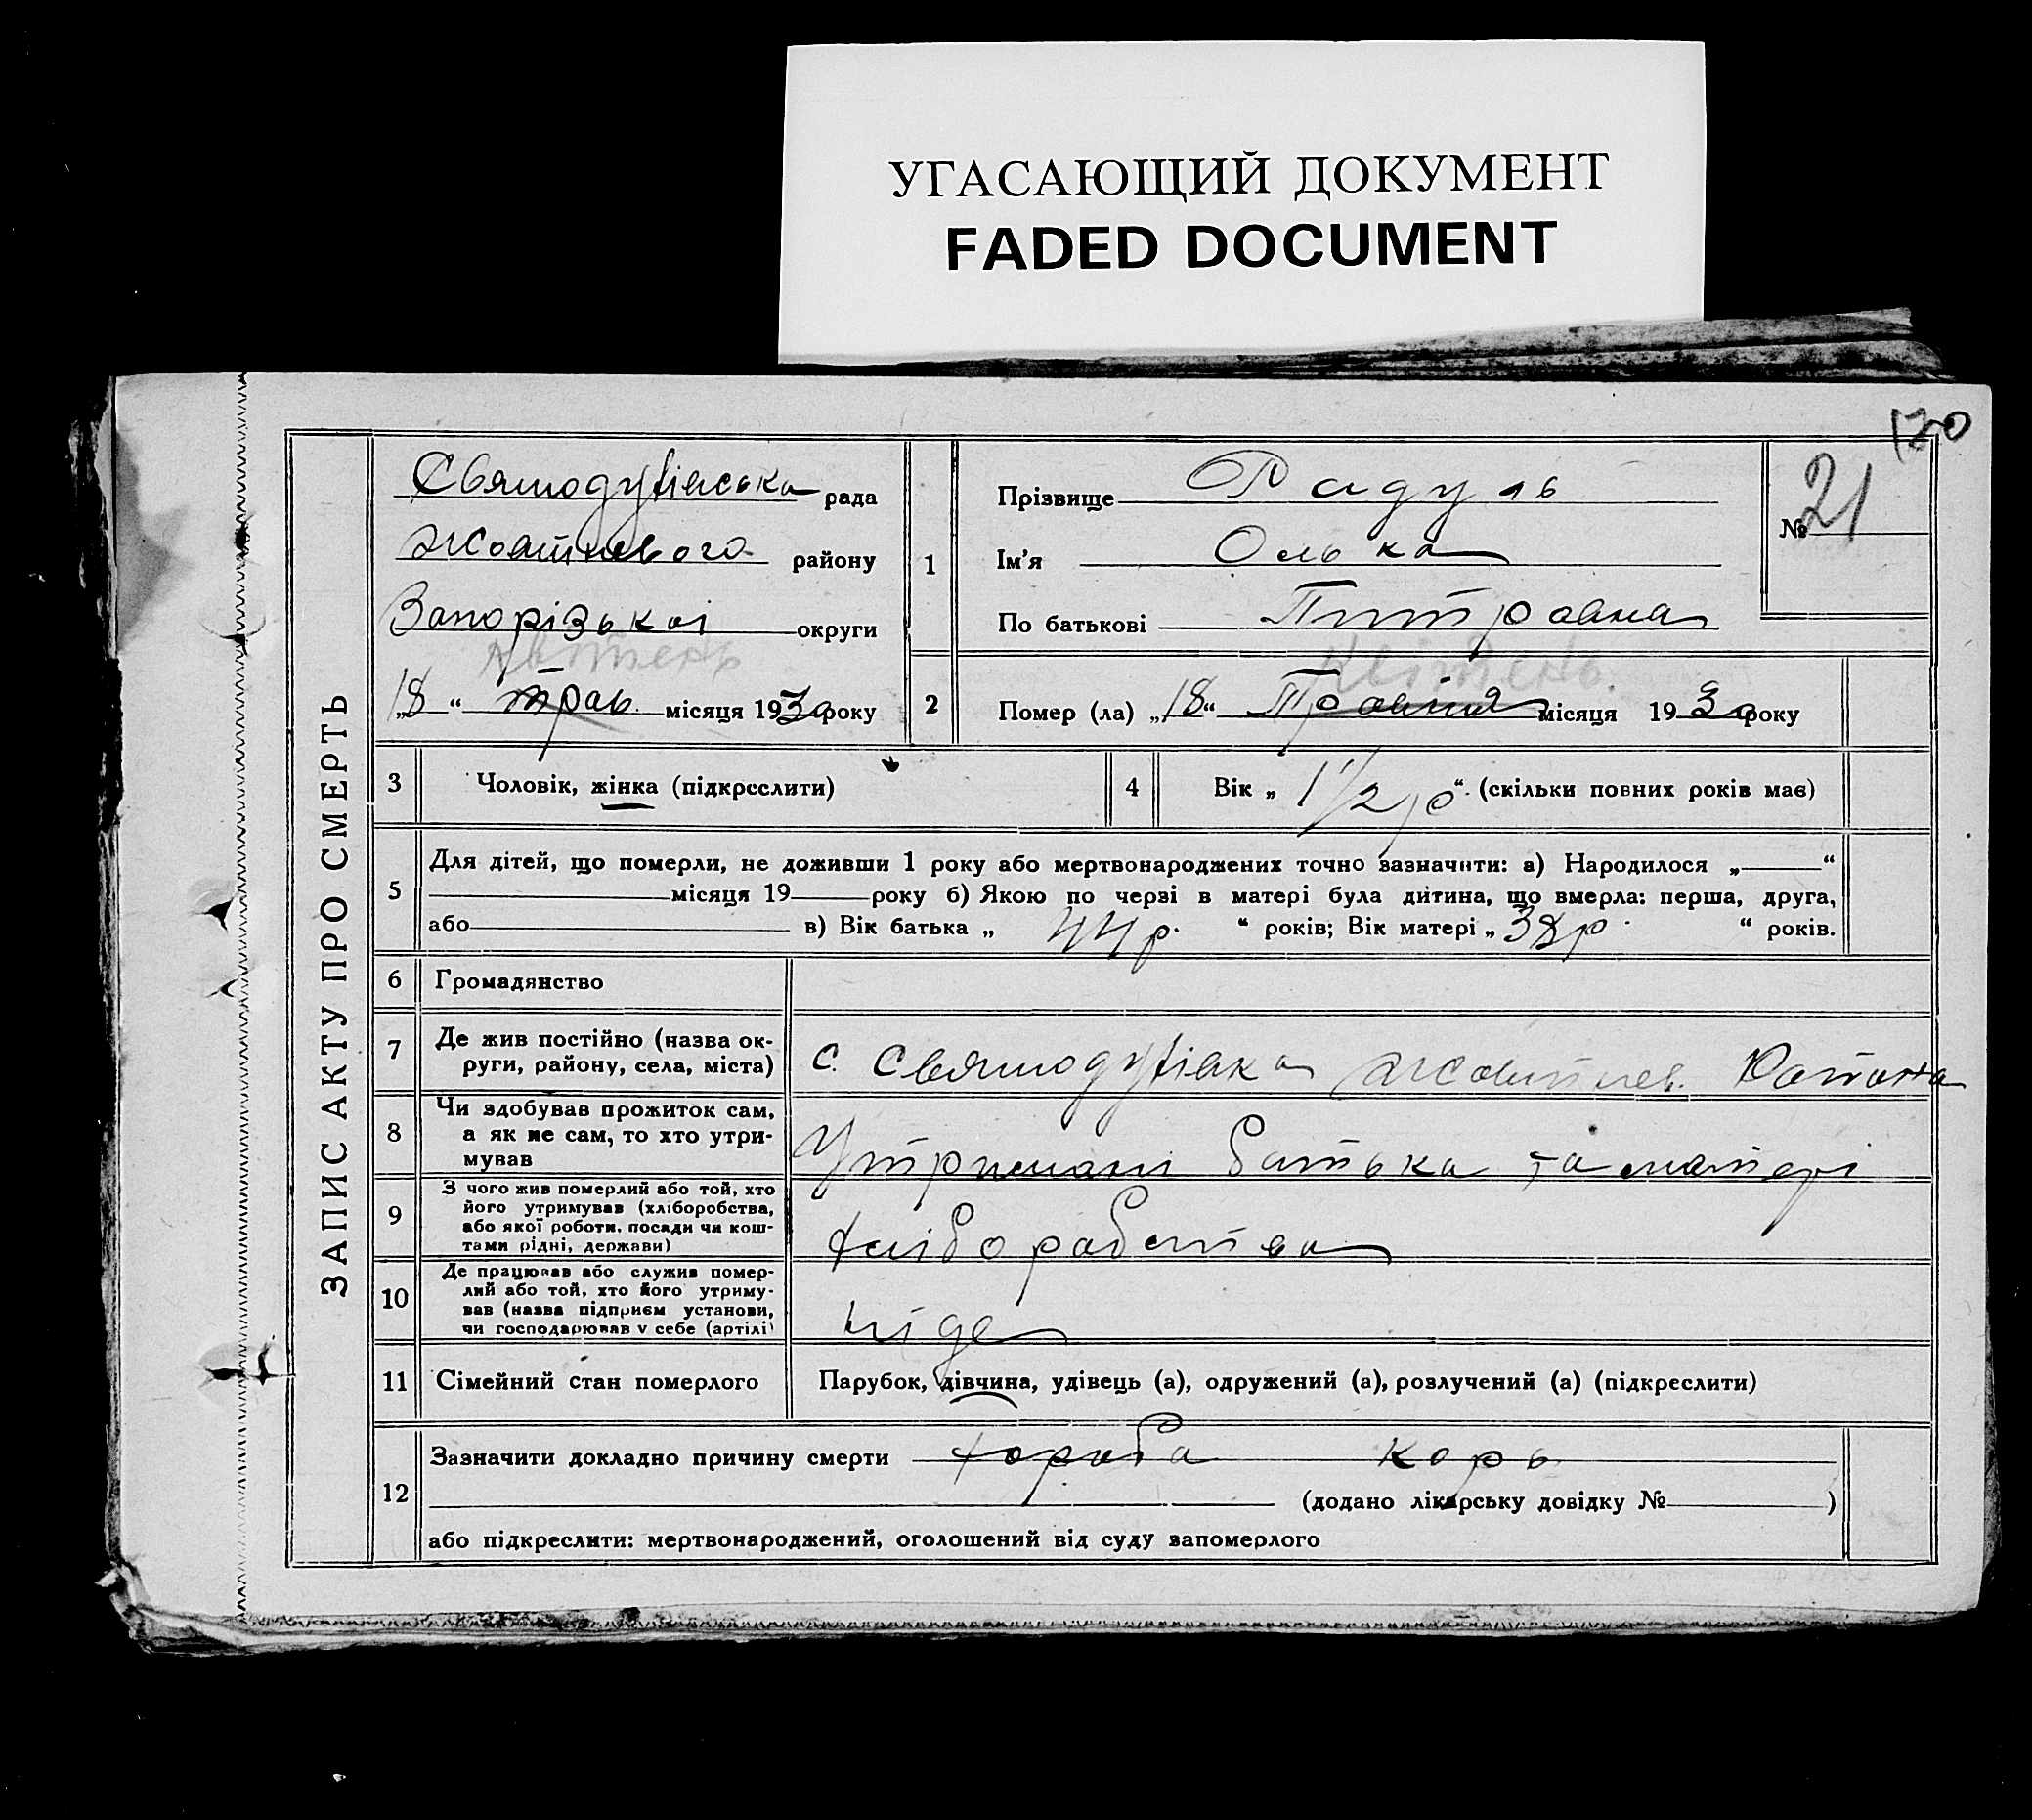 УГАСАЮЩИЙ ДОКУМЕНТ
FADED DOCUMENT
170
ЗАПИС АКТУ ПРО СМЕРТЬ
Святодухівська рада
Жовтневого району
Запорізькоі округи
квітень
„18“ трав. місяця 1930 року
1
Прізвище Радуль
Ім'я Олька
По батькові Питровна
№ 21
2
Квітень.
Помер (ла) „18“ Травня місяця 1930 року
3 Чоловік, жінка (підкреслити)
4 Вік „ 1 1/2 р “ (скільки повних років має)
5
Для дітей, що померли, не доживши 1 року або мертвонароджених точно зазначити: а) Народилося „ “
місяця 19 року б) Якою по черзі в матері була дитина, що вмерла: перша, друга,
або в) Вік батька „ 44 р. “ років; Вік матері „ 38 р. “ років.
6 Громадянство
7 Де жив постійно (назва ок-
руги, району, села, міста)
с. Святодухівка Жовтнев. Района
8 Чи здобував прожиток сам,
а як не сам, то хто утри-
мував
Утримані батька та матері
9 З чого жив померлий або той, хто
його утримував (хліборобства,
або якої роботи, посади чи кош-
тами рідні, держави)
хліборабства
10 Де працював або служив помер-
лий або той, хто його утриму-
вав (назва підприєм установи,
чи господарював у себе (артілі)
ніде
11 Сімейний стан померлого
Парубок, дівчина, удівець (а), одружений (а), розлучений (а) (підкреслити)
12
Зазначити докладно причину смерти хороба корь
(додано лікарську довідку № )
або підкреслити: мертвонароджений, оголошений від суду запомерлого